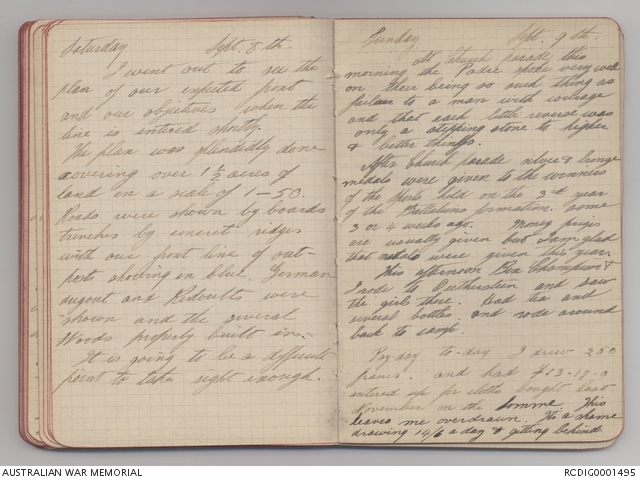 Saturday Sept. 8th.
I went out to see the
plan of our expected front
and our objectives when the
line is enticed shortly.
The plan was splendidly done
covering over 1½ acres of
land on a scale of 1-50.
Roads were shown by boards
trenches by emcrit ridges
with our front line of out-
posts showing in blue. German
dugout and Redoubts were
shown and the several
Woods properly built in.
It is going to be a difficult
point to take right enough.
Sunday Sept. 9th.
At Church parade this
morning the Padre spoke very well
on their being no such thing as
failure to a man with courage
and that each little reverse was
only a stepping stone to higher
& better things.
After Church parade silver & bronze
medals were given to the winners
of the Sports held on the 3rd year
of the Battalions formation. some
3 or 4 weeks ago. Money prizes
are usually given but I am glad
that medals were given this year
This afternoon Ben Champion &
I rode to and saw
the girls there. Had tea and
several bottles. and rode around
back to camp.
Pay day to-day I drew 250
francs. and had £13-17-0
entered up for cloths bought last
November on the Somme This
leaves me overdrawn. Its a shame
drawing 14/6 a day & getting behind
AUSTRALIAN WAR MEMORIAL
RCDIG0001495